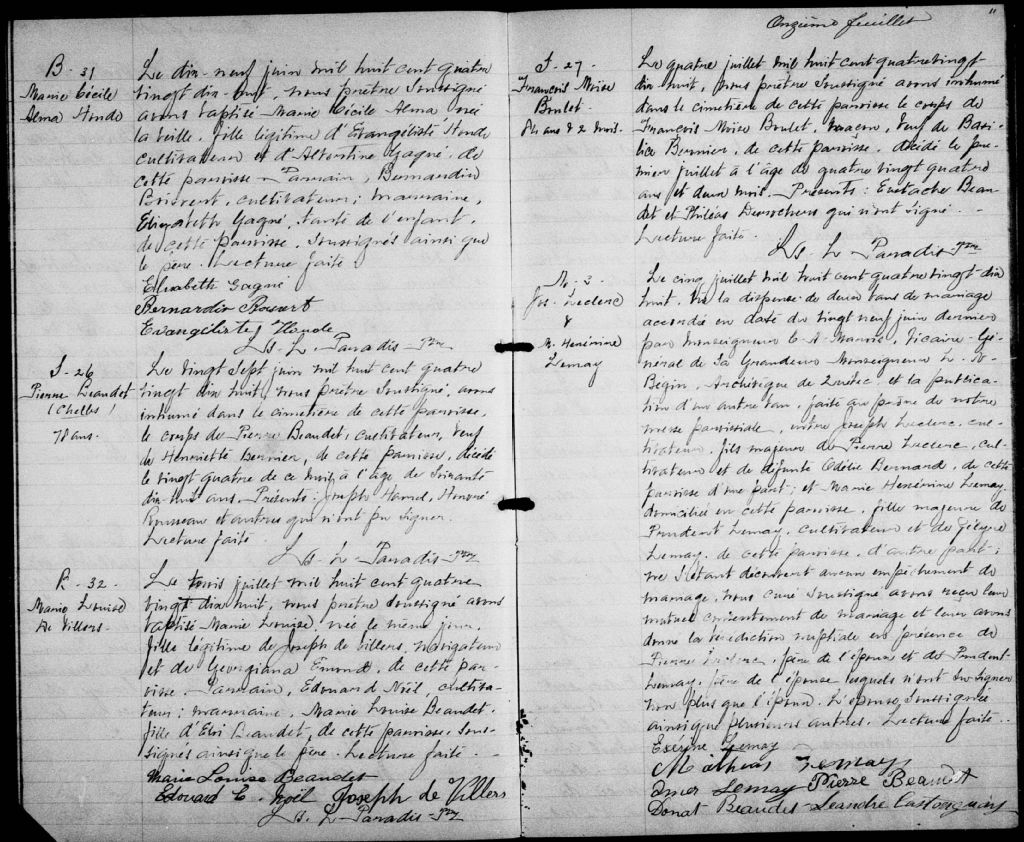 B - 31
Marie Cécile
Alma Houde
Le dix-neuf juin mil huit cent quatre
vingt dix-huit, nous prêtre soussigné
avons baptisé Marie Cécile Alma née
la veille, fille légitime d'Evangéliste Houde
cultivateur et d'Albertine Gagné, de
cette paroisse - Parrain, Bernardin
Boisvert, cultivateur; marraine,
Elisabeth Gagné, tante de l'enfant,
de cette paroisse. Soussignés ainsi que
le père. Lecture faite
Elisabeth Gagné
Bernardin Boisvert
Evangéliste Houde
Ls. L. Paradis - Ptre
S - 26
Pierre Beaudet
78 ans.
Le vingt sept juin mil huit cent quatre
vingt dix huit, nous prêtre soussigné, avons
inhumé dans le cimetière de cette paroisse,
le corps de Pierre Beaudet, cultivateur, veuf
de Henriette Bernier, de cette paroisse, décédé
le vingt quatre de ce mois, à l'âge de soixante
dix-huit ans. Présents: Joseph Hamel, Honoré
Rousseau et autres qui n'ont pu signer.
Lecture faite
Ls. L. Paradis - Ptre
B - 32 -
Marie Louise
de Villers.
Le trois juillet mil huit cent quatre
vingt dix huit, nous prêtre soussigné avons
baptisé Marie Louise, née le même jour,
fille légitime de Joseph de Villers, navigateur
et de Georgiana Emond, de cette pa-
roisse. Parrain, Edouard Noël, cultiva-
teur; marraine, Marie Louise Beaudet,
fille d'Eloi Beaudet, de cette paroisse. Sous-
signés ainsi que le père. Lecture faite. -
Marie Louise Beaudet
Edouard E. Noël Joseph de Villers
Ls. L. Paradis - Ptre
11
Onzième feuillet
S - 27 -
François Moïse
Boulet
84 ans & 2 mois.
Le quatre juillet mil huit cent quatre vingt
dix-huit, nous prêtre soussigné avons inhumé
dans le cimetière de cette paroisse le corps de
François Moïse Boulet, maçon, veuf de Basi-
lice Bernier, de cette paroisse, décédé le pre-
mier juillet à l'âge de quatre vingt quatre
ans et deux mois. Présents: Eustache Beau-
det et Philéas Desrochers qui n'ont signé. -
Lecture faite.
Ls. L. Paradis - Ptre
M - 3
Jos. Leclerc
&
M. Herménine
Lemay
Le cinq juillet mil huit cent quatre vingt dix
huit, vu la dispense de deux bans de mariage
accordée en date du vingt neuf juin dernier
par Monseigneur C. A. Marois, Vicaire-Gé-
néral de Sa Grandeur Monseigneur L. N.
Bégin, Archevêque de Québec, et la publica-
tion d'un autre ban, faite au prône de notre
messe paroissiale, entre Joseph Leclerc, cul-
tivateur, fils majeur de Pierre Leclerc, cul-
tivateur et de défunte Odélie Bernard, de cette
paroisse d'une part; et Marie Herménine Lemay,
domiciliée en cette paroisse, fille majeure de
Prudent Lemay, cultivateur et de
Lemay, de cette paroisse, d'autre part;
ne s'étant découvert aucun empêchement de
mariage, nous curé soussigné avons reçu leur
mutuel consentement de mariage et leur avons
donné la bénédiction nuptiale en présence de
Pierre Leclerc, père de l'époux et de Prudent
Lemay, père de l'épouse lesquels n'ont su signer
non plus que l'époux. L'épouse soussignée
ainsi que plusieurs autres. Lecture faite. -
Lemay
Mathias Lemay
Lemay Pierre Beaudet
Donat Beaudet - Léandre Castonguay